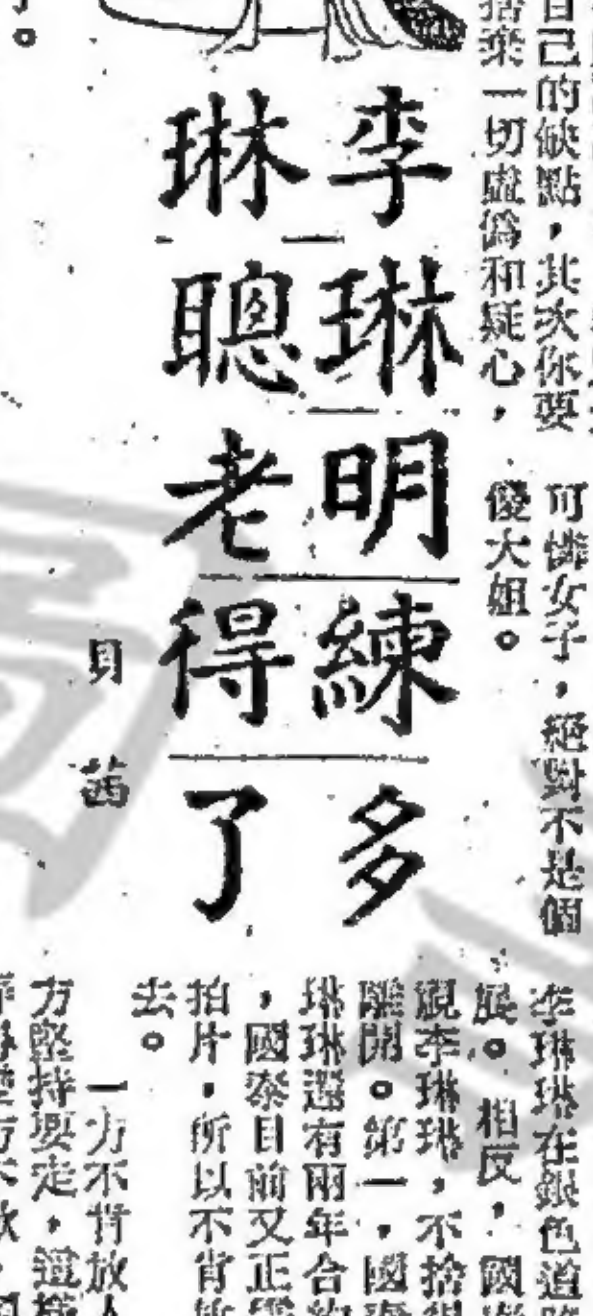 自己的缺點，其次你要
捨棄一切虛偽和疑心，
可憐女子，絕對不是個
傻大姐。
李琳
琳聰
明老
練得
多了
貝茜
李琳琳在銀色道
展。相反，國
視李琳琳，不捨
離開。第一，國
琳琳還有兩年合
，國泰目前又正
拍片，所以不肯
去。
一方不肯放人
方堅持要走，這